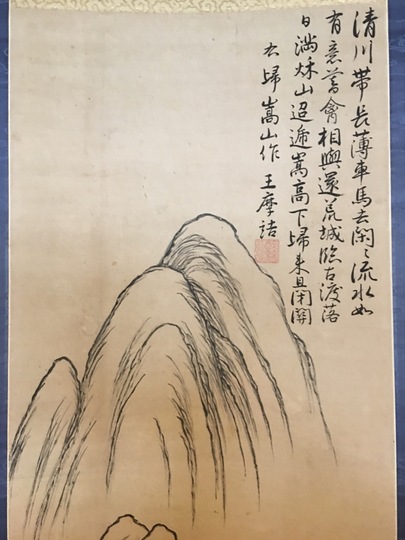 清川帶長薄車馬去閑〻流水如
有意暮禽相與還荒城臨古渡落
日滿秋山迢遞嵩高下歸来且閉關
右歸嵩山作 王摩詰